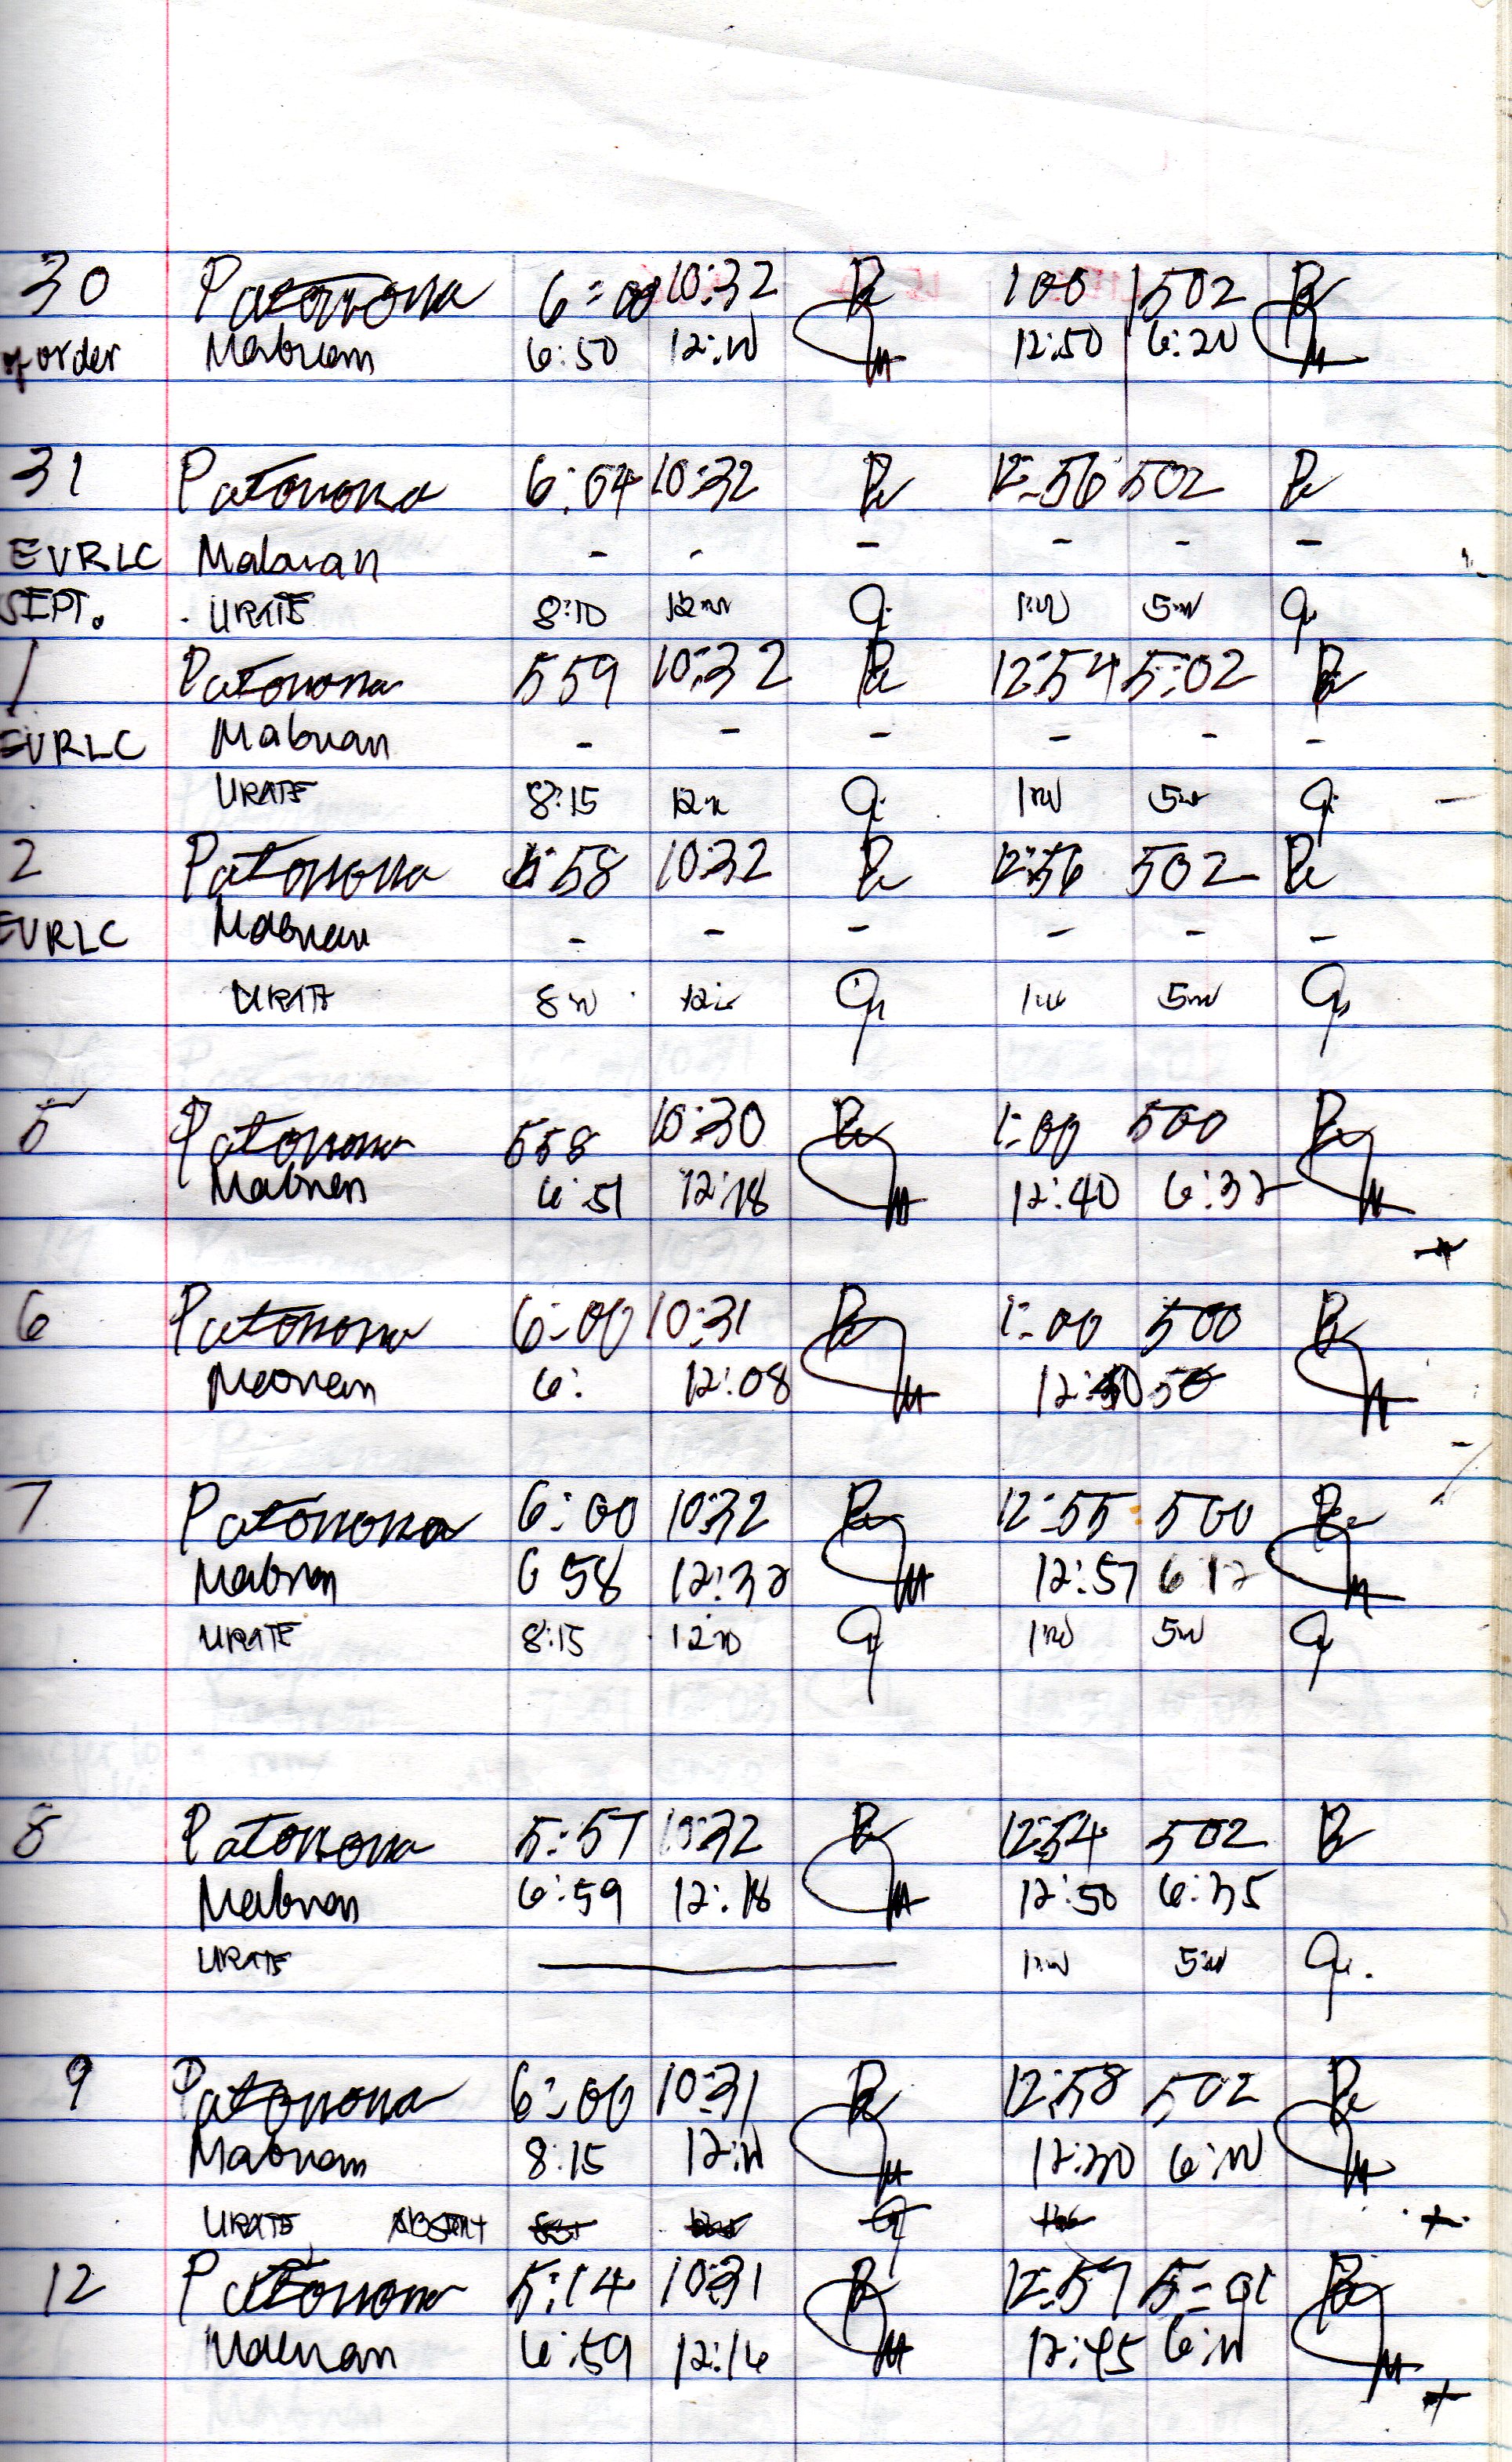 30 Patonona 6:00 10:32 1:00 502
of order Mabuan 6:50 12:10 12:50 6:20
31 Patonona 6:04 10:32 12:56 502
EVRLC Mabuan - - - - - -
SEPT. URATE 8:10 12:00 1:00 5:00
1 Patonona 559 10:32 12:54 5:02
EVRLC Mabuan - - - - - -
URATE 8:15 1:00 5:00
2 Patonona 5:58 10:32 12:56 502
EVRLC Mabuan - - - - - -
URATE 8:00 5:00
5 Patonona 558 10:30 1:00 500
Mabuan 6:51 12:18 12:40 6:32
6 Patonona 6:00 10:31 1:00 500
Mabuan 6: 12:08
7 Patonona 6:00 10:32 12:55 500
Mabuan 6 58 12:32 12:57 6 12
URATE 8:15 12:00 1:00 5:00
8 Patonona 5:57 10:32 12:54 502
Mabuan 6:59 12:18 12:50 6:35
URATE 1:00 5:00
9 Patonona 6:00 10:31 12:58 502
Mabuan 8:15 12:11 12:30 6:10
URATE ABSENT
12 Patonona 5:14 10:31 12:57 5:01
Mabuan 6:59 12:16 12:45